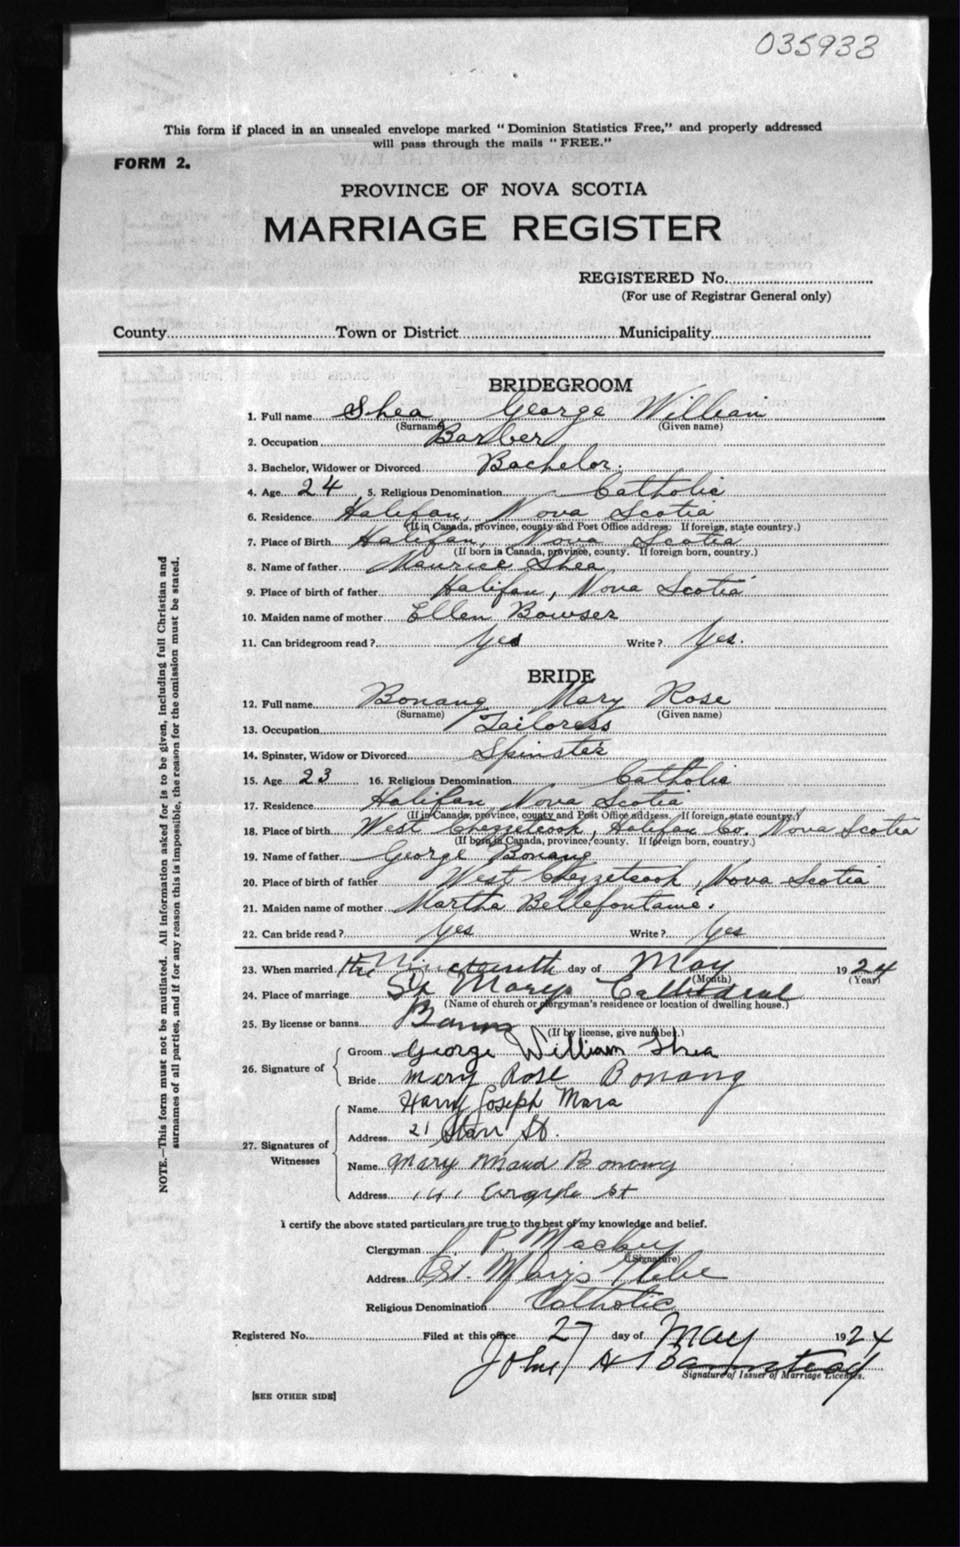 035933
This form if placed in an unsealed envelope marked "Dominion Statistics Free," and properly addressed
will pass through the mails "FREE."
FORM 2.
PROVINCE OF NOVA SCOTIA
MARRIAGE REGISTER
REGISTERED No.
(For use of Registrar General only)
County Town or District Municipality
BRIDEGROOM
1. Full name Shea George William
(Surname) (Given name)
2. Occupation Barber
3. Bachelor, Widower or Divorced Bachelor.
4. Age 24 5. Religious Denomination Catholic
6. Residence Halifax, Nova Scotia
(If in Canada, province, county and Post Office address; If foreign, state country.)
7. Place of Birth Halifax, Nova Scotia
(If born in Canada, province, county. If foreign born, country.)
8. Name of father Maurice Shea
9. Place of birth of father Halifax, Nova Scotia
10. Maiden name of mother Ellen Bowser
11. Can bridegroom read? Yes Write? Yes.
BRIDE
12. Full name Bonang Mary Rose
(Surname) (Given name)
13. Occupation Tailoress
14. Spinster, Widow or Divorced Spinster
15. Age 23 16. Religious Denomination Catholic
17. Residence Halifax Nova Scotia
(If in Canada, province, county and Post Office address. If foreign, state country.)
18. Place of birth West Chezzetcook, Halifax Co. Nova Scotia
(If born in Canada, province, county. If foreign born, country.)
19. Name of father George Bonang
20. Place of birth of father West Chezzetcook, Nova Scotia
21. Maiden name of mother Martha Bellefontaine.
22. Can bride read? Yes Write? Yes
23. When married the Nineteenth day of May 1924
(Month) (Year)
24. Place of marriage St Marys Cathedral
(Name of church or clergyman's residence or location of dwelling house.)
25. By license or banns Banns
(If by license, give number.)
26. Signature of
Groom George William Shea
Bride Mary Rose Bonang
27. Signatures of Witnesses
Name Harry Joseph Mara
Address 21 Starr St.
Name Mary Maud Bonang
Address Argyle St
I certify the above stated particulars are true to the best of my knowledge and belief.
Clergyman P. Mackey
(Signature)
Address St. Mary's Glebe
Religious Denomination Catholic
Registered No. Filed at this office 27 day of May 1924
John H Barnstead
Signature of Issuer of Marriage Licenses.
[SEE OTHER SIDE]
NOTE.—This form must not be mutilated. All information asked for is to be given, including full Christian and
surnames of all parties, and if for any reason this is impossible, the reason for the omission must be stated.